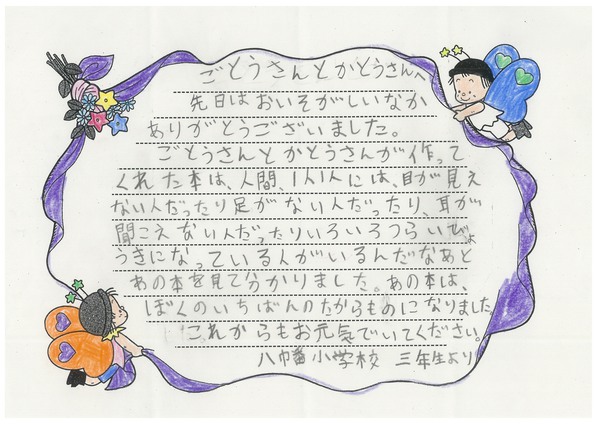 ごとうさんとかとうさんへ
先日はおいそがしいなか
ありがとうございました。
ごとうさんとかとうさんが作って
くれた本は、人間、1人1人には、目が見え
ない人だったり足がない人だったり、耳が
聞こえない人だったりいろいろつらいびょ
うきになっている人がいるんだなあと
あの本を見て分かりました。あの本は、
ぼくのいちばんのたからものになりました
これからもお元気でいてください。
八巾番小学校 三年生より